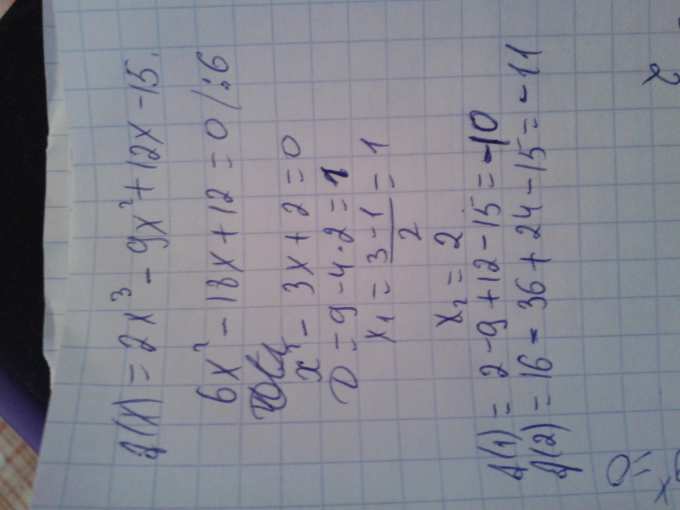 f(x) = 2x³ - 9x² + 12x - 15.
6x² - 18x + 12 = 0 /:6
x² - 3x + 2 = 0
D = 9 - 4·2 = 1
x₁ = (3-1)/2 = 1
x₂ = 2
f(1) = 2-9+12-15 = -10
f(2) = 16-36+24-15 = -11
2